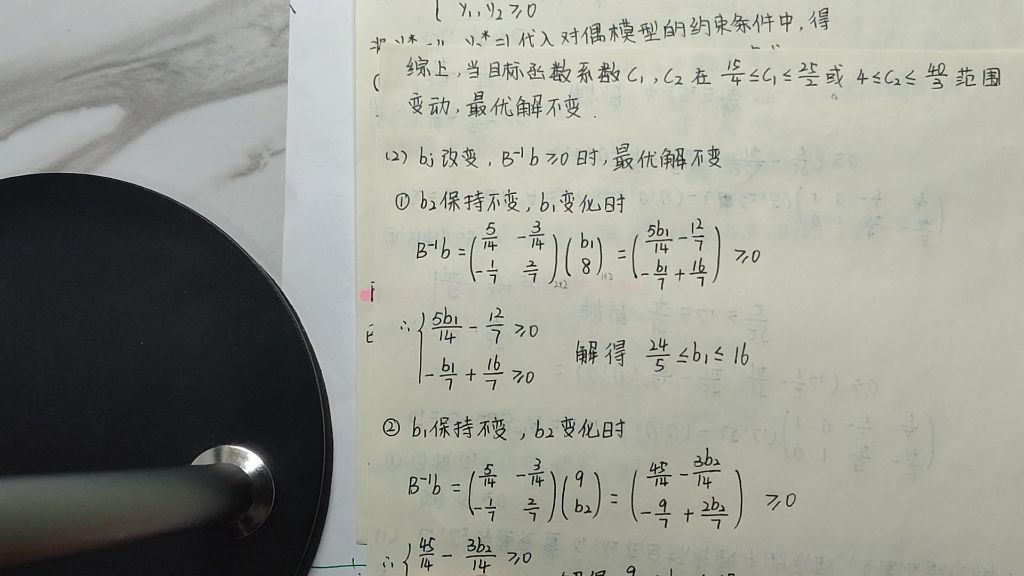 y₁, y₂ ≥ 0
代入对偶模型的约束条件中,得
综上,当目标函数系数 C₁, C₂ 在 15/4 ≤ C₁ ≤ 25/2 或 4 ≤ C₂ ≤ 40/3 范围
变动,最优解不变.
(2) bj 改变, B⁻¹b ≥ 0 时,最优解不变
① b₂保持不变, b₁变化时
B⁻¹b = (5/14 -3/14; -1/7 2/7)₂ₓ₂ (b₁; 8) = (5b₁/14 - 12/7; -b₁/7 + 16/7) ≥ 0
∴ { 5b₁/14 - 12/7 ≥ 0
-b₁/7 + 16/7 ≥ 0 解得 24/5 ≤ b₁ ≤ 16
② b₁保持不变, b₂变化时
B⁻¹b = (5/14 -3/14; -1/7 2/7) (9; b₂) = (45/14 - 3b₂/14; -9/7 + 2b₂/7) ≥ 0
∴ { 45/14 - 3b₂/14 ≥ 0